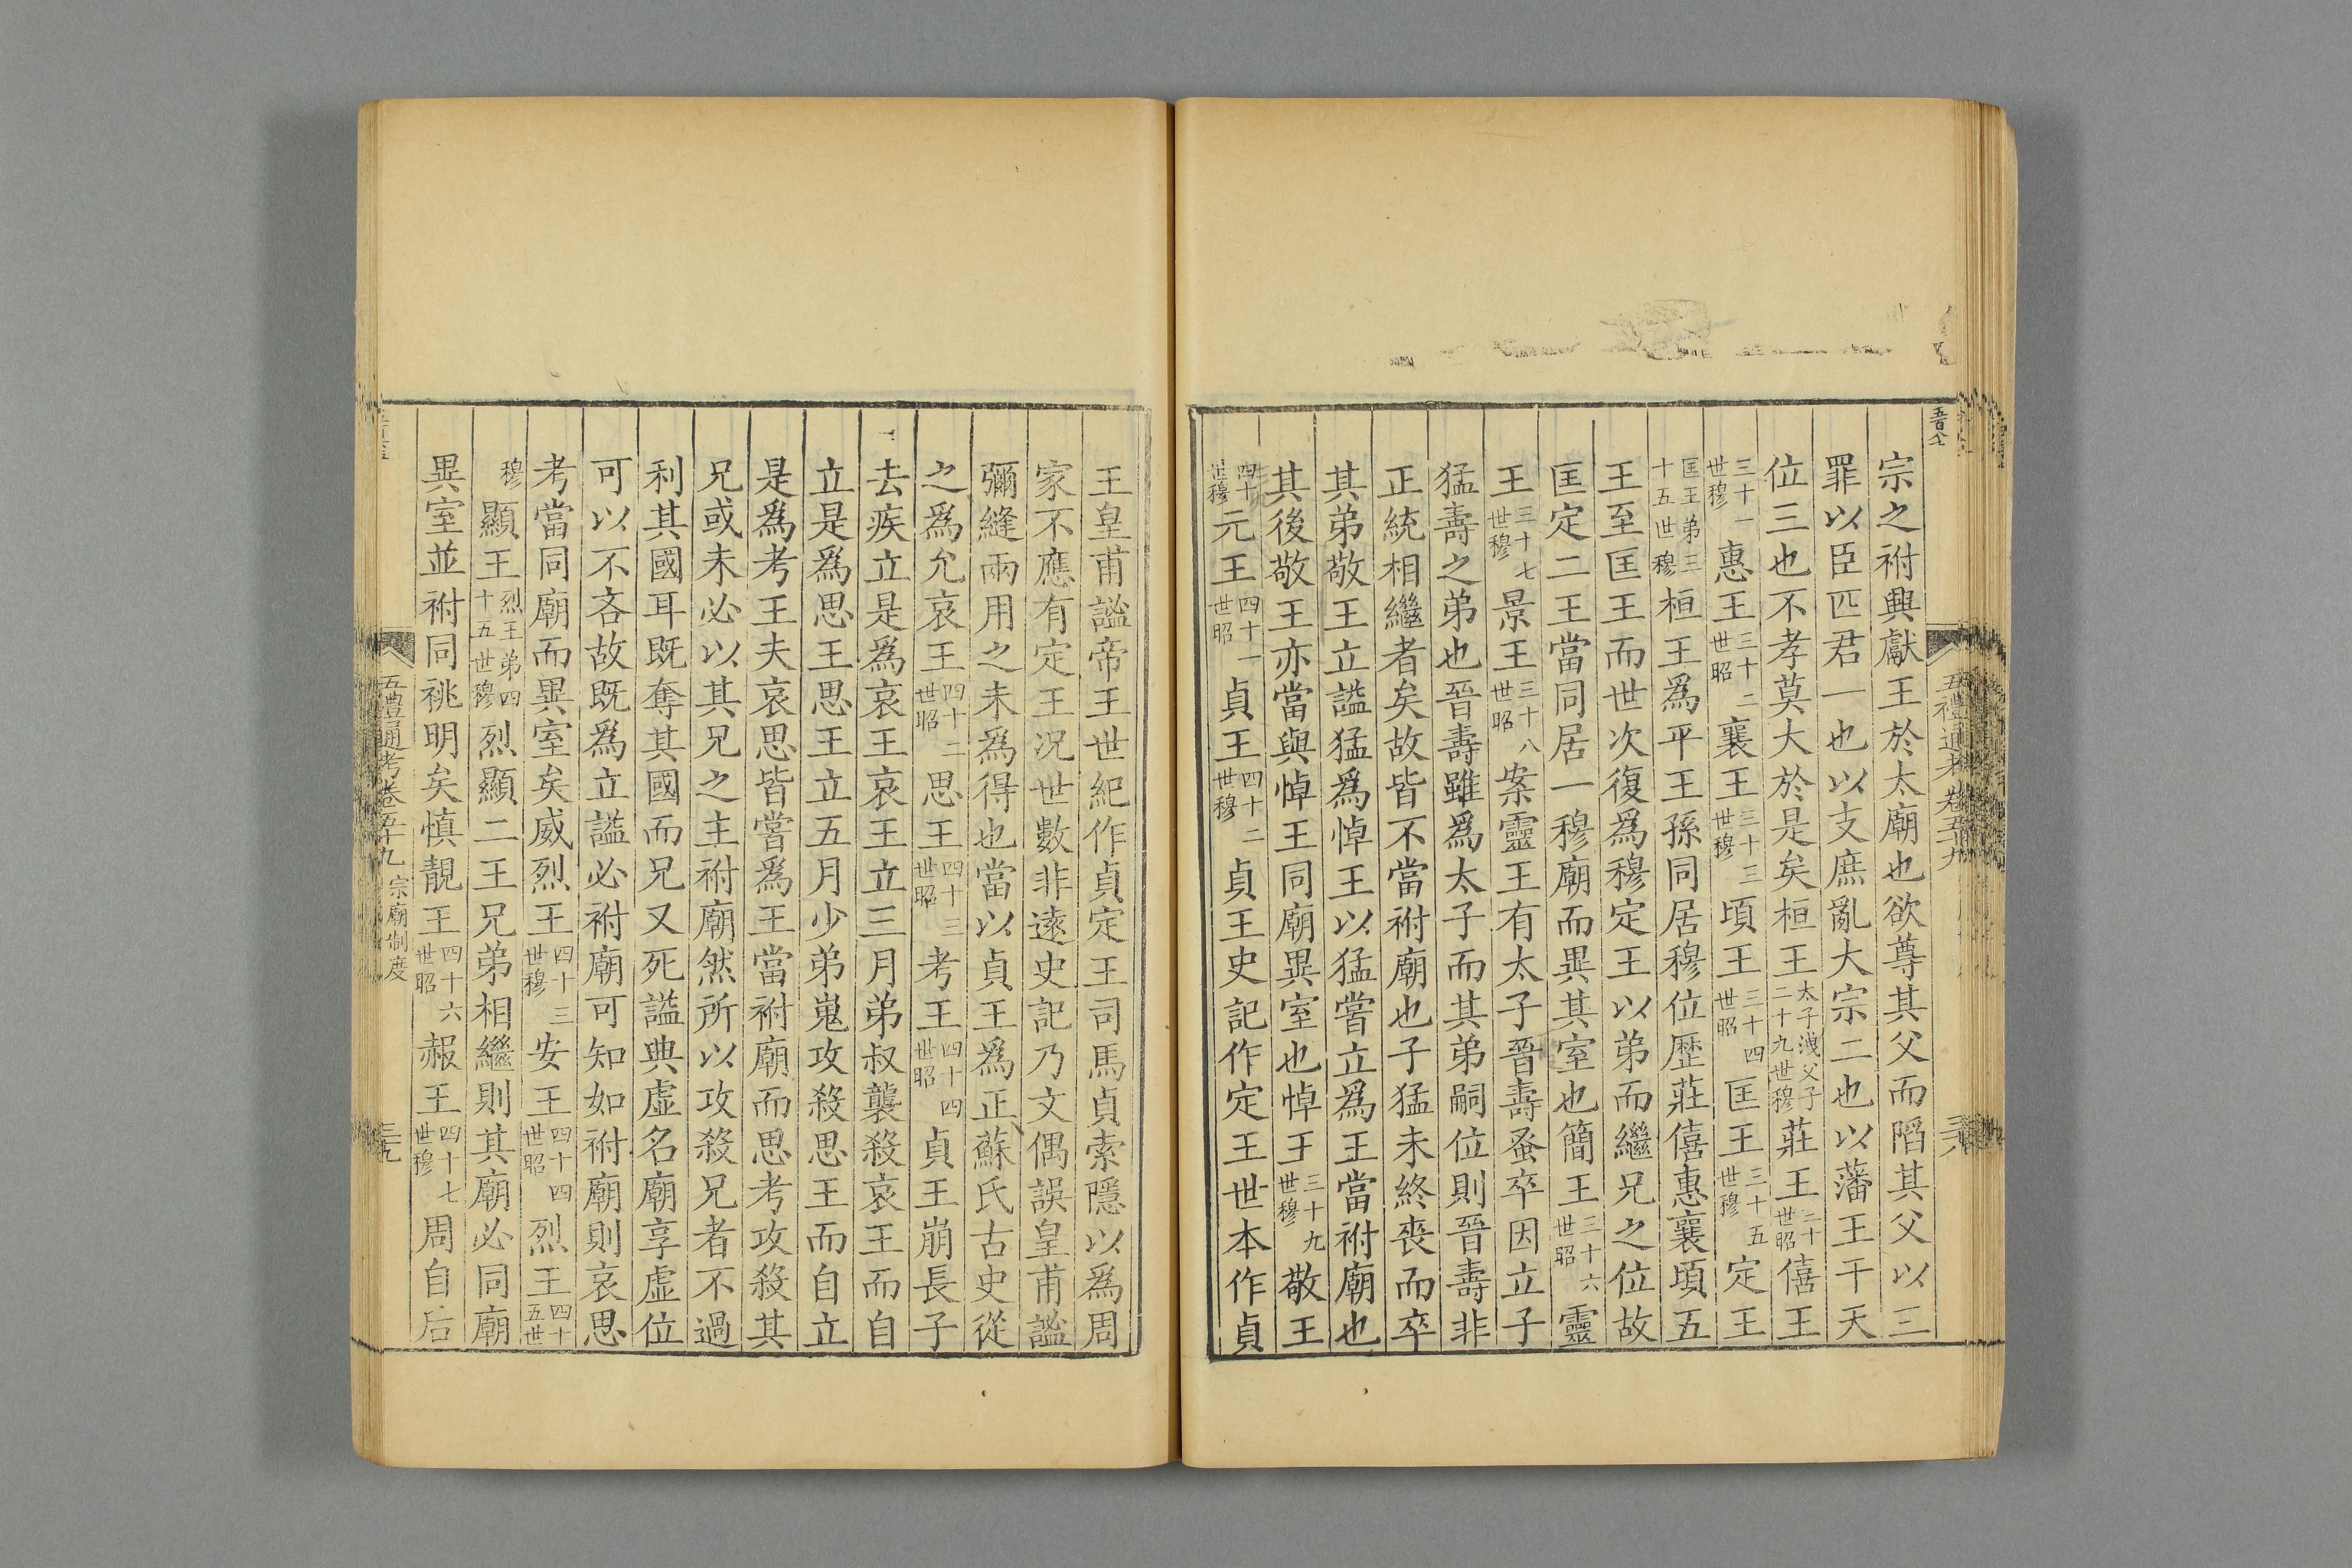 五禮通考卷五十九
宗之祔興獻王於太廟也欲尊其父而陷其父以三
罪以臣匹君一也以支庶亂大宗二也以藩王干天
位三也不孝莫大於是矣桓王太子洩父子二十九世穆莊王三十世昭僖王
三十一世穆惠王三十二世昭襄王三十三世穆頃王三十四世昭匡王三十五世穆定王
匡王弟三十五世穆桓王爲平王孫同居穆位歷莊僖惠襄頃五
王至匡王而世次復爲穆定王以弟而繼兄之位故
匡定二王當同居一穆廟而異其室也簡王三十六世昭靈
王三十七世穆景王三十八世昭案靈王有太子晉壽蚤卒因立子
猛壽之弟也晉壽雖爲太子而其弟嗣位則晉壽非
正統相繼者矣故皆不當祔廟也子猛未終喪而卒
其弟敬王立謚猛爲悼王以猛嘗立爲王當祔廟也
其後敬王亦當與悼王同廟異室也悼王三十九世穆敬王
四十世穆元王四十一世昭貞王四十二世穆貞王史記作定王世本作貞
王皇甫謐帝王世紀作貞定王司馬貞索隱以爲周
家不應有定王況世數非遠史記乃文偶誤皇甫謐
彌縫兩用之未爲得也當以貞王爲正蘇氏古史從
之爲允哀王四十二世昭思王四十三世昭考王四十四世昭貞王崩長子
去疾立是爲哀王哀王立三月弟叔襲殺哀王而自
立是爲思王思王立五月少弟嵬攻殺思王而自立
是爲考王夫哀思皆嘗爲王當祔廟而思考攻殺其
兄或未必以其兄之主祔廟然所以攻殺兄者不過
利其國耳既奪其國而兄又死謚典虛名廟享虛位
可以不吝故既爲立謚必祔廟可知如祔廟則哀思
考當同廟而異室矣威烈王四十三世穆安王四十四世昭烈王四十五世
穆顯王烈王弟四十五世穆烈顯二王兄弟相繼則其廟必同廟
異室並祔同祧明矣慎靚王四十六世昭赧王四十七世穆周自后
五禮通考卷五十九 宗廟制度 三九